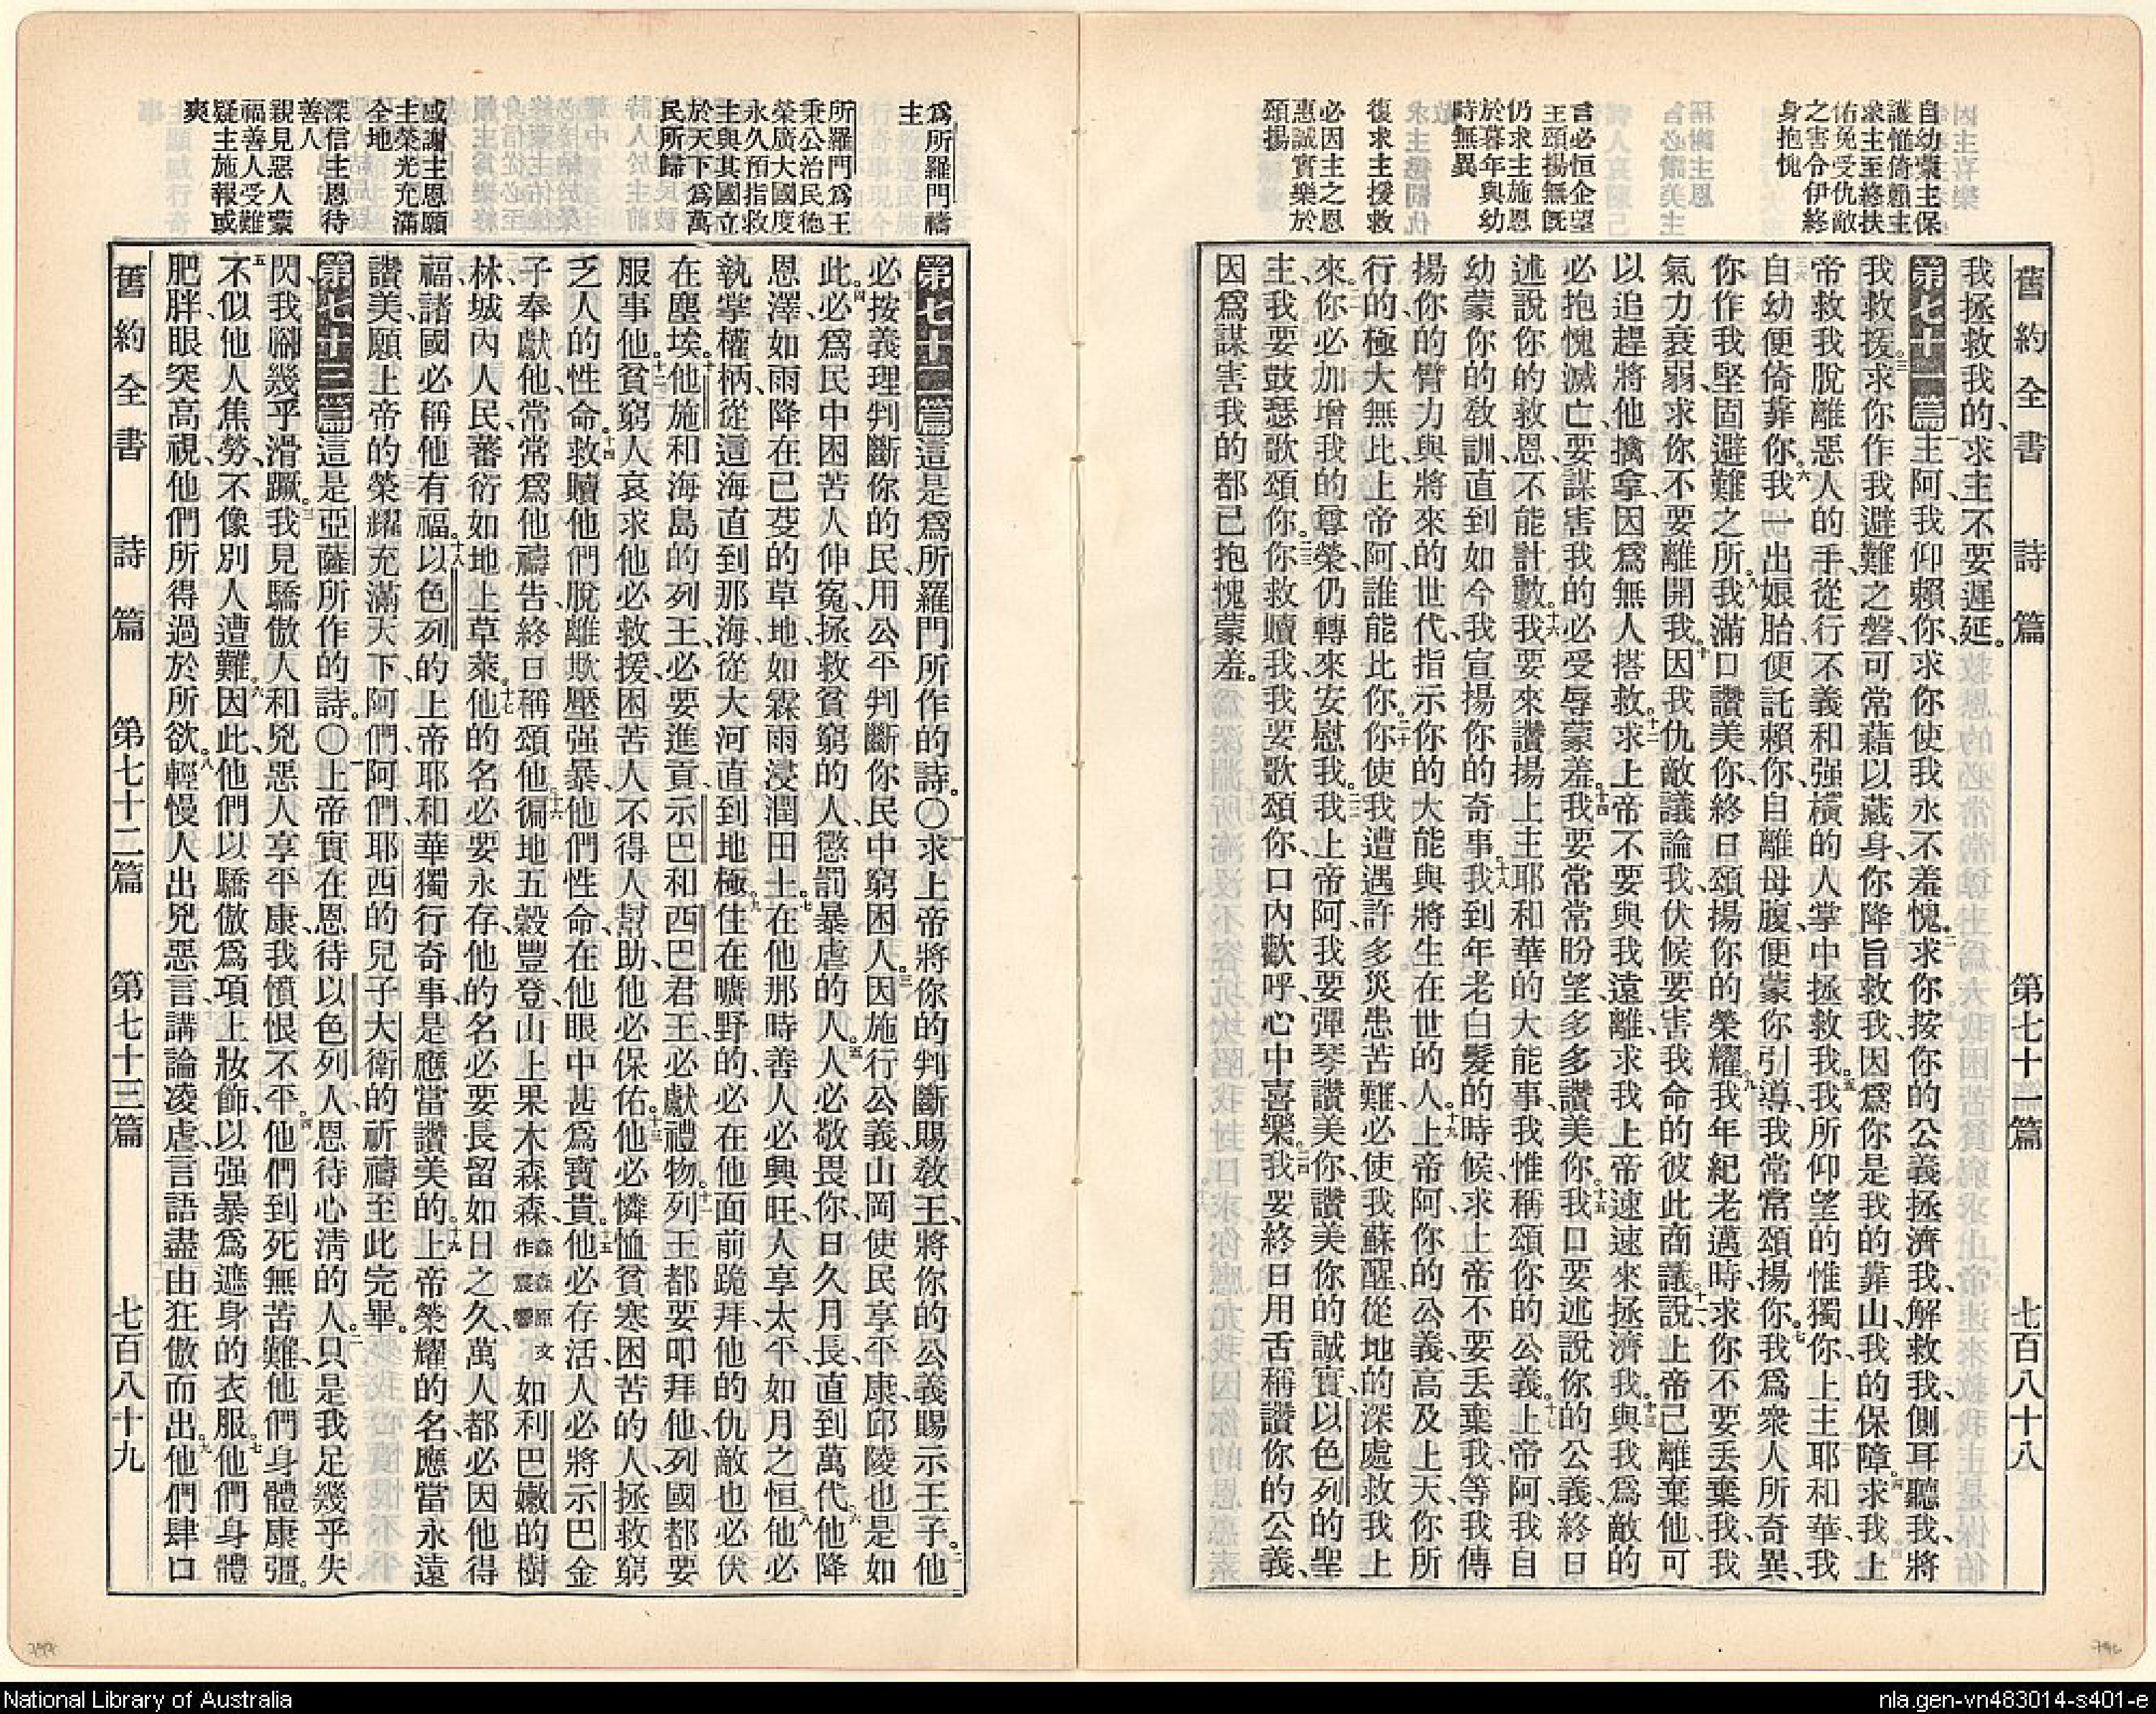 舊約全書 詩篇 第七十一篇 七百八十八
自幼蒙主保
護惟倚賴主
求主至終扶
佑免受仇敵
之害令伊終
身抱愧
言必恒企望
主頌揚無旣
仍求主施恩
於暮年與幼
時無異
復求主援救
必因主之恩
惠誠實樂於
頌揚
我拯救我的、求主不要遲延。
第七十一篇 一主阿、我仰賴你、求你使我永不羞愧。二求你按你的公義拯濟我、解救我、側耳聽我、將
我救援。三求你作我避難之磐、可常藉以藏身、你降旨救我、因爲你是我的靠山、我的保障。四求我上
帝救我脫離惡人的手、從行不義和强橫的人掌中拯救我。五我所仰望的惟獨你、上主耶和華、我
自幼便倚靠你。六我一出娘胎便託賴你、自離母腹、便蒙你引導、我常常頌揚你。七我爲衆人所奇異、
你作我堅固避難之所。八我滿口讚美你、終日頌揚你的榮耀。九我年紀老邁時、求你不要丟棄我、我
氣力衰弱、求你不要離開我。十因我仇敵議論我、伏候要害我命的彼此商議。十一說、上帝已離棄他、可
以追趕將他擒拿、因爲無人搭救。十二求上帝不要與我遠離、求我上帝速速來拯濟我。十三與我爲敵的
必抱愧滅亡、要謀害我的必受辱蒙羞。十四我要常常盼望、多多讚美你。十五我口要述說你的公義、終日
述說你的救恩、不能計數。十六我要來讚揚上主耶和華的大能事、我惟稱頌你的公義。十七上帝阿、我自
幼蒙你的敎訓、直到如今我宣揚你的奇事。十八我到年老白髮的時候、求上帝不要丟棄我、等我傳
揚你的臂力與將來的世代、指示你的大能與將生在世的人。十九上帝阿、你的公義高及上天、你所
行的極大無比、上帝阿、誰能比你。二十你使我遭遇許多災患苦難、必使我蘇醒、從地的深處救我上
來。二一你必加增我的尊榮、仍轉來安慰我。二二我上帝阿、我要彈琴讚美你、讚美你的誠實、以色列的聖
主、我要鼓瑟歌頌你。二三你救贖我、我要歌頌你、口內歡呼、心中喜樂。二四我要終日用舌稱讚你的公義、
因爲謀害我的都已抱愧蒙羞。
爲所羅門禱
主
所羅門爲王
秉公治民德
榮廣大國度
永久預指救
主與其國立
於天下爲萬
民所歸
感謝主恩願
主榮光充滿
全地
深信主恩待
善人
親見惡人蒙
福善人受難
疑主施報或
爽
第七十二篇 這是爲所羅門所作的詩。〇一求上帝將你的判斷賜敎王、將你的公義賜示王子。二他
必按義理判斷你的民、用公平判斷你民中窮困人。三因施行公義、山岡使民享平康、邱陵也是如
此。四必爲民中困苦人伸冤、拯救貧窮的人、懲罰暴虐的人。五人必敬畏你、日久月長、直到萬代。六他降
恩澤、如雨降在已芟的草地、如霖雨浸潤田土。七在他那時善人必興旺、人享太平、如月之恒。八他必
執掌權柄、從這海直到那海、從大河直到地極。九住在曠野的、必在他面前跪拜、他的仇敵也必伏
在塵埃。十他施和海島的列王、必要進貢、示巴和西巴君王、必獻禮物。十一列王都要叩拜他、列國都要
服事他。十二貧窮人哀求他必救援、困苦人不得人幫助、他必保佑。十三他必憐恤貧寒困苦的人、拯救窮
乏人的性命。十四救贖他們脫離欺壓强暴、他們性命在他眼中甚爲寶貴。十五他必存活、人必將示巴金
子奉獻他、常常爲他禱告、終日稱頌他。十六徧地五穀豐登、山上果木森森、森森原文作震響如利巴嫩的樹
林、城內人民、蕃衍如地上草萊。十七他的名必要永存、他的名必要長留如日之久、萬人都必因他得
福、諸國必稱他有福。十八以色列的上帝耶和華、獨行奇事、是應當讚美的。十九上帝榮耀的名、應當永遠
讚美、願上帝的榮耀充滿天下、阿們、阿們。耶西的兒子大衛的祈禱至此完畢。
第七十三篇 這是亞薩所作的詩。〇一上帝實在恩待以色列人、恩待心淸的人。二只是我足幾乎失
閃、我腳幾乎滑蹶。三我見驕傲人和兇惡人享平康、我憤恨不平。四他們到死無苦難、他們身體康彊。
五不似他人焦勞、不像別人遭難。六因此他們以驕傲爲項上妝飾、以强暴爲遮身的衣服。七他們身體
肥胖、眼突高視、他們所得過於所欲。八輕慢人出兇惡言、講論凌虐、言語盡由狂傲而出。九他們肆口
舊約全書 詩篇 第七十二篇 第七十三篇 七百八十九
National Library of Australia
nla.gen-vn483014-s401-e